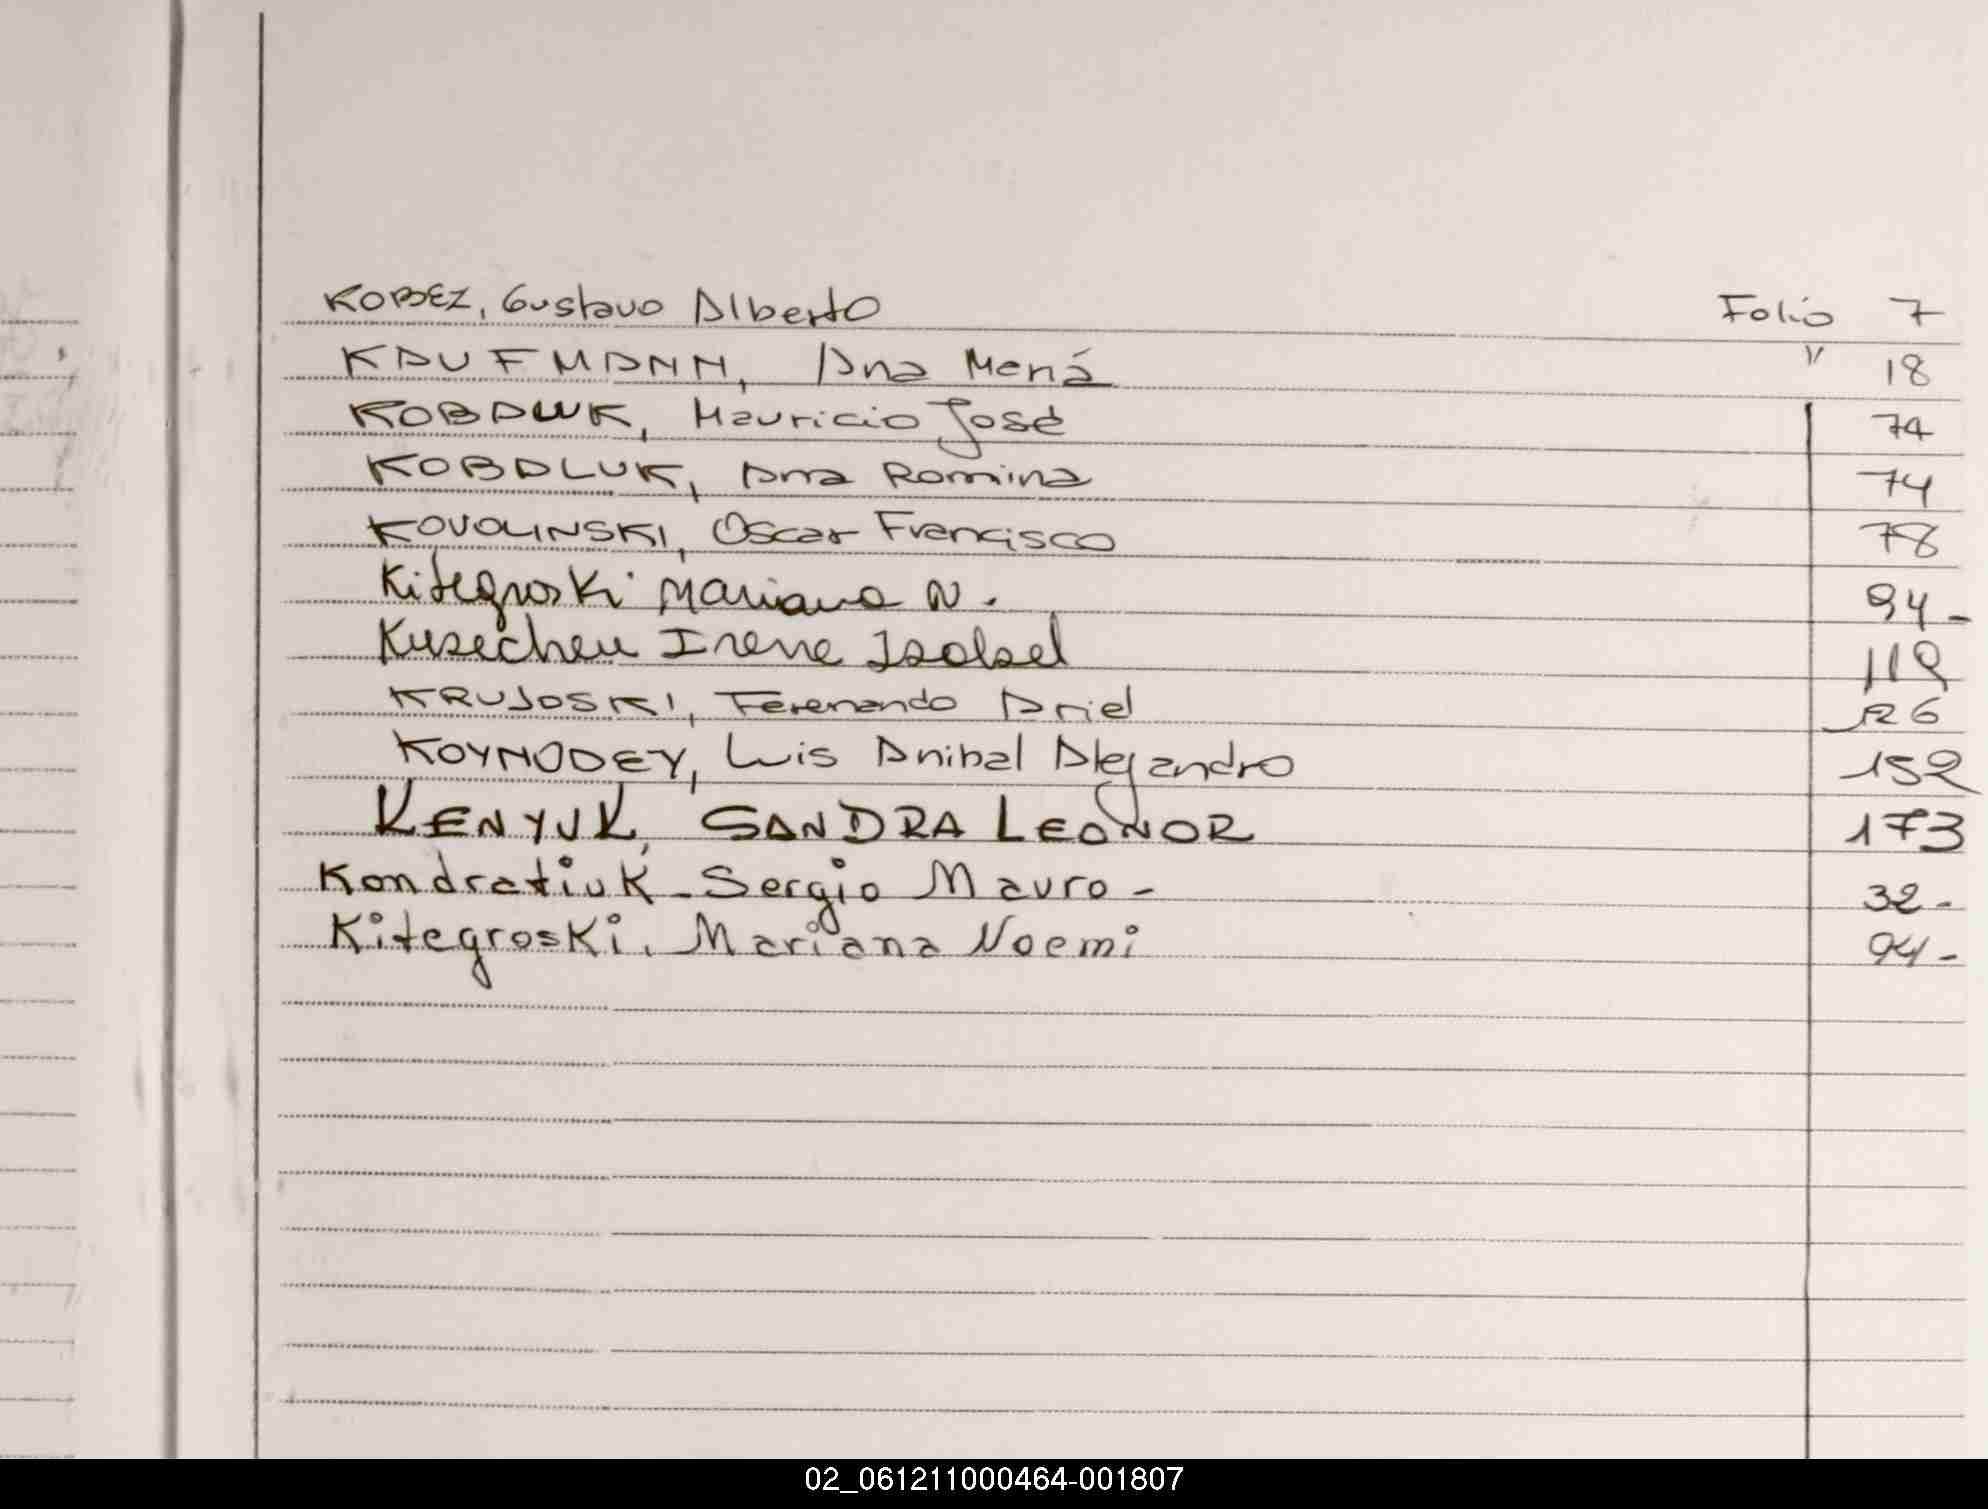 KOBEZ, Gustavo Alberto Folio 7
KAUFMANN, Ana María " 18
KOBALUK, Mauricio José 74
KOBALUK, Ana Romina 74
KOVOLINSKI, Oscar Francisco 78
Kitegroski Mariana N. 94-
Irene Isabel 119
KRUJOSKI, Ferenando Ariel 126
KOYNODEY, Luis Anibal Alejandro 152
KENYUK, SANDRA LEONOR 173
Kondratiuk - Sergio Mauro - 32-
Kitegroski, Mariana Noemi 94-
02_061211000464-001807